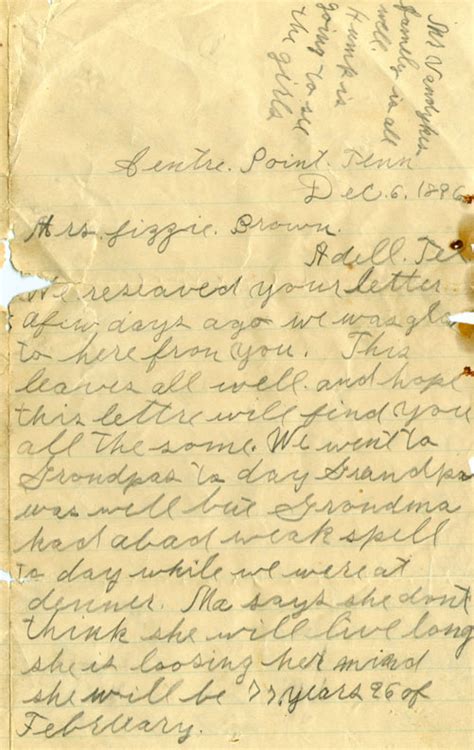 Mr Vandykes
family is all
well.
Hump is
going to see
the girls
Centre. Point. Tenn
Dec. 6, 1896
Mrs. Lizzie. Brown.
Adell. Te
We reseaved your letter
a few days ago we was gla
to here fron you. This
leaves all well. and hope
this lettre will find you
all the some. We went to
Grondpas to day Grandpa
was well but Grondma
had a bad weak spell
to day while we were at
denner. Ma says she dont
think she will live long
she is loosing her mind
she will be 77 years 26 of
February.